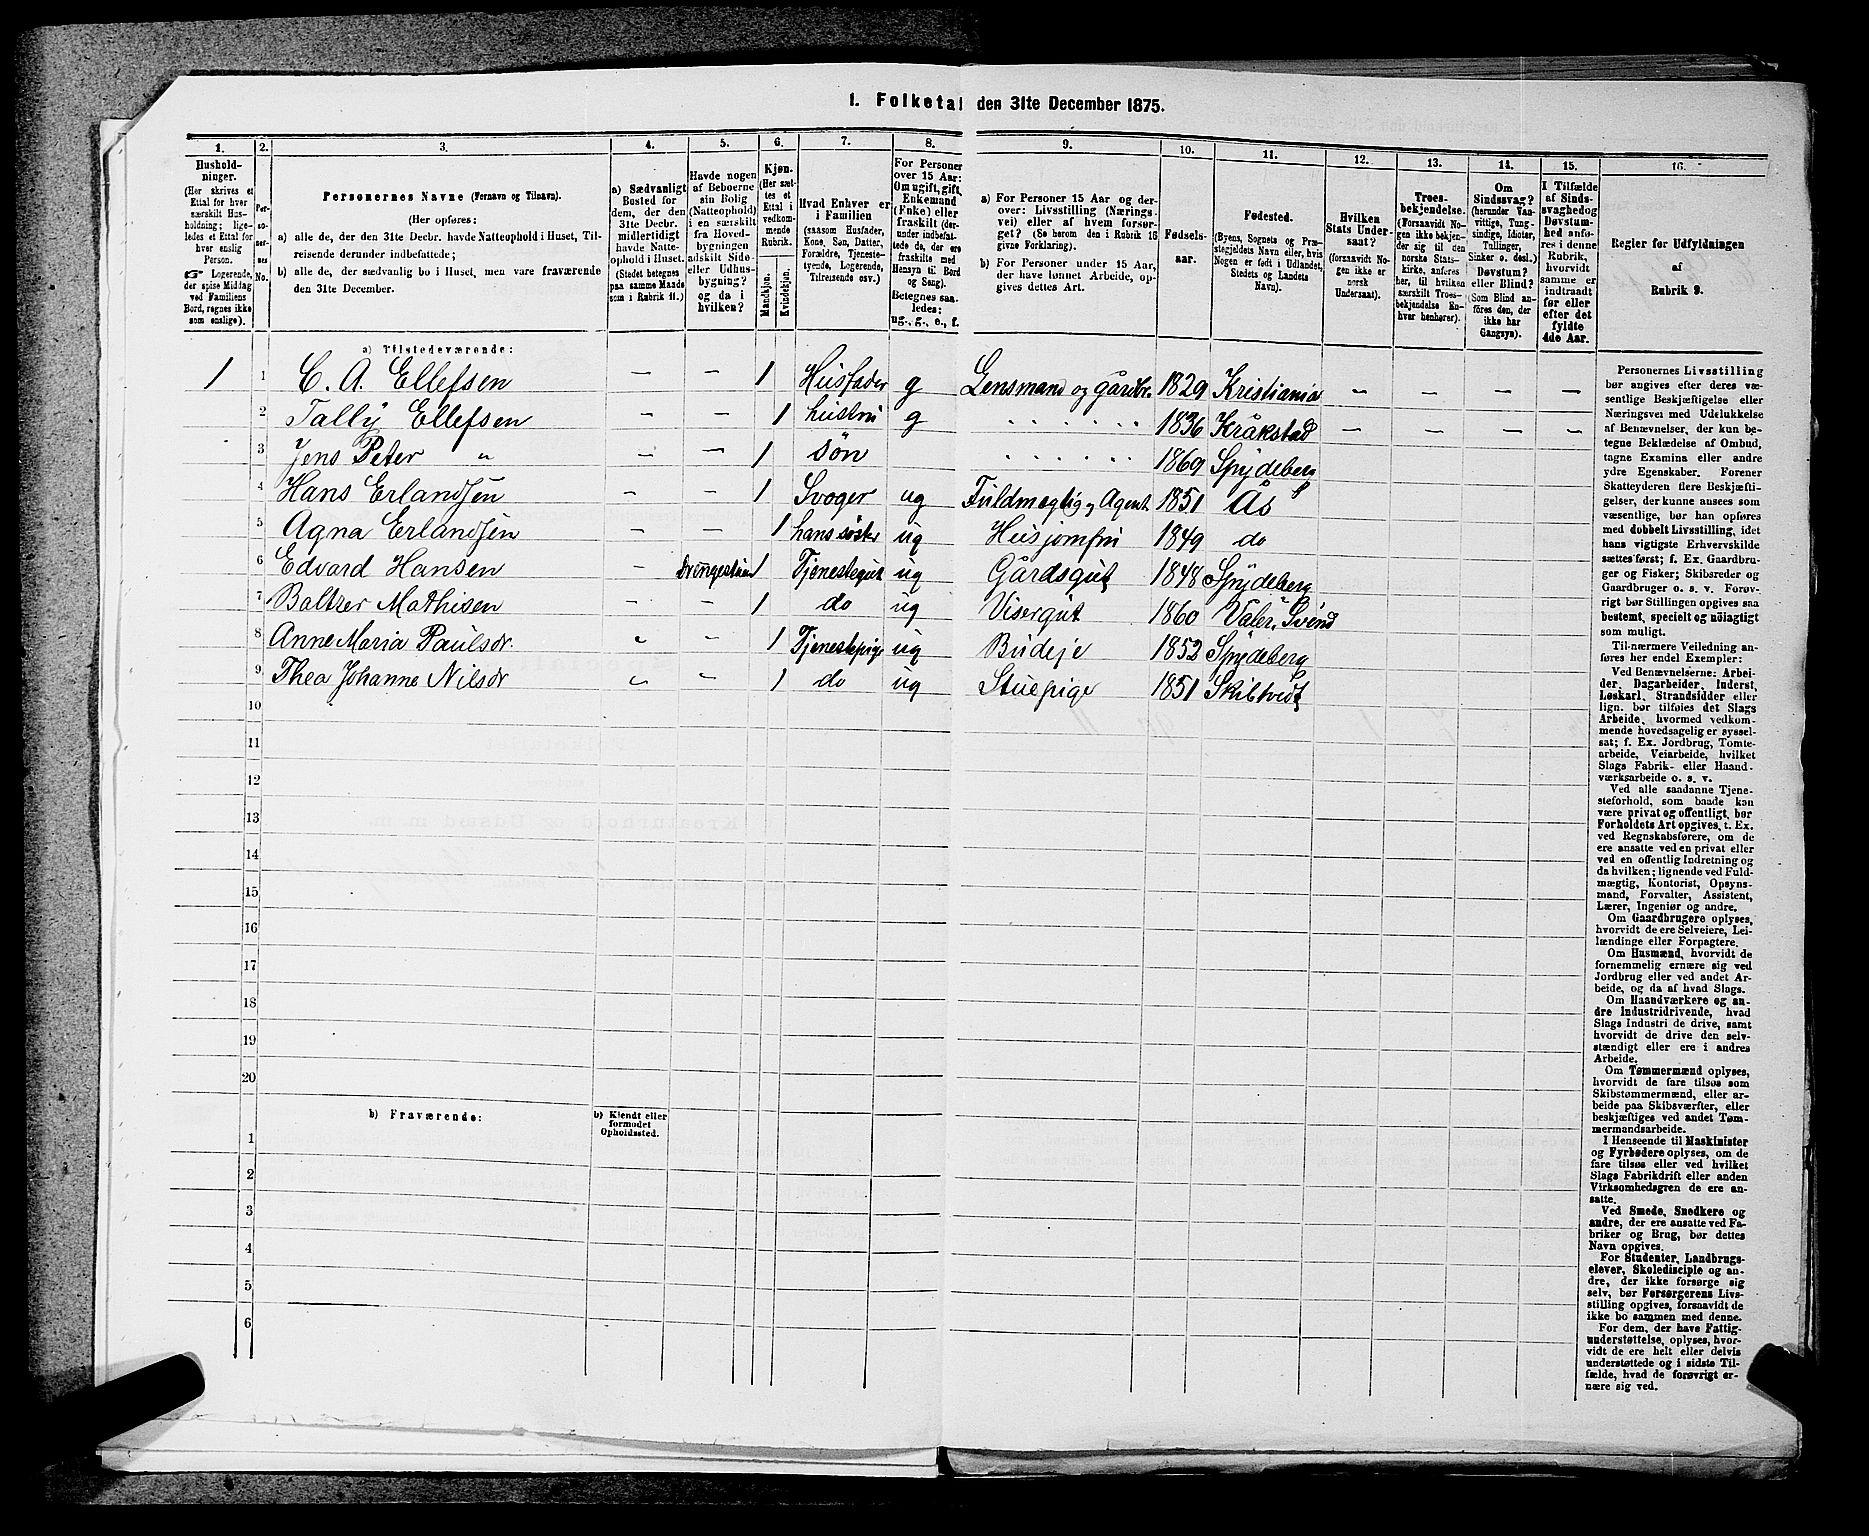 1. Folketal den 31te December 1875.
1. 2. 3. 4. 5. 6. 7. 8. 9. 10. 11. 12. 13. 14. 15. 16.
Hushold-
ninger.
(Her skrives et
Ettal for hver
særskilt Hus-
holdning; lige-
ledes et Ettal for
hver enslig
Person.
☞ Logerende,
der spise Middag
ved Familiens
Bord, regnes ikke
som enslige).
Per-
so-
ner-
nes
No.
Personernes Navne (Fornavn og Tilnavn).
(Her opføres:
a) alle de, der den 31te Decbr. havde Natteophold i Huset, Til-
reisende derunder indbefattede;
b) alle de, der sædvanlig bo i Huset, men vare fraværende
den 31te December.
a) Sædvanligt
Bosted for
dem, der den
31te Decbr.
midlertidigt
havde Natte-
ophold i Huset.
(Stedet betegnes
paa samme Maade
som i Rubrik 11.)
Havde nogen
af Beboerne
sin Bolig
(Natteophold)
i en særskilt
fra Hoved-
bygningen
adskilt Side-
eller Udhus-
bygning?
og da i
hvilken?
Kjøn.
(Her sæt-
tes et
Ettal i
vedkom-
mende
Rubrik.
Mandkjøn.
Kvindekjøn.
Hvad Enhver er
i Familien
(saasom Husfader,
Kone, Søn, Datter,
Forældre, Tjeneste-
tyende, Logerende,
Tilreisende osv.)
For Personer
over 15 Aar:
Om ugift, gift,
Enkemand
(Enke) eller
fraskilt (der-
under indbefat-
tede de, der ere
fraskilte med
Hensyn til Bord
og Seng).
Betegnes saa-
ledes:
ug., g., e., f.
a) For Personer 15 Aar og der-
over: Livsstilling (Nærings-
vei) eller af hvem forsør-
get? (Se herom den i Rubrik 16
givne Forklaring).
b) For Personer under 15 Aar,
der have lønnet Arbeide, op-
gives dettes Art.
Fødsels-
aar.
Fødested.
(Byens, Sognets og Præ-
stegjeldets Navn eller, hvis
Nogen er født i Udlandet,
Stedets og Landets
Navn).
Hvilken
Stats Under-
saat?
(forsaavidt No-
gen ikke er
norsk
Undersaat).
Troes-
bekjendelse.
(Forsaavidt No-
gen ikke bekjen-
der sig til den
norske Stats-
kirke, anføres
her, til hvilken
særskilt Troes-
bekjendelse En-
hver henhører).
Om
Sindssvag?
(herunder Vaa-
vittige, Tung-
sindige, Idioter,
Tullinger,
Sinker o. desl.)
Døvstum?
eller Blind?
(Som Blind an-
føres den, der
ikke har
Gangsyn).
I Tilfælde
af Sinds-
svaghed og
Døvstum-
hed anfø-
res i denne
Rubrik,
hvorvidt
samme er
indtraadt
før eller
efter det
fyldte
4de Aar.
Regler for Udfyldningen
af
Rubrik 9.
a) Tilstedeværende:
1 1 C. A. Ellefsen — — 1 Husfader g Lensmand og gårdbr. 1829 Kristiania — — — —
2 Tally Ellefsen — — 1 hustru g " " " " " " 1836 Kråkstad — — — —
3 Jens Peter " — — 1 søn " " " " " " 1869 Spydeberg
4 Hans Erlandsen — — 1 Svoger ug Fuldmægtig og Agent 1851 Ås
5 Agna Erlandsen — — 1 hans søster ug Husjomfru 1849 do
6 Edvard Hansen — Drengestuen 1 Tjenestegut ug Gårdsgut 1848 Spydeberg
7 Baltzer Mathisen — — 1 do ug Visergut 1860 Valer
8 Anne Maria Paulsdr. " " 1 Tjenestepige ug Budeje 1852 Spydeberg
9 Thea Johanne Nilsdr " " 1 do ug Stuepige 1851 Skibtvedt
10
11
12
13
14
15
16
17
18
19
20
b) Fraværende:
b) Kjendt eller
formodet
Opholdssted.
1
2
3
4
5
6
Personernes Livsstilling
bør angives efter deres væ-
sentlige Beskjæftigelse eller
Næringsvei med Udelukkelse
af Benævnelser, der kun be-
tegne Beklædelse af Ombud,
tagne Examina eller andre
ydre Egenskaber. Forener
Skatteyderen flere Beskjæfti-
gelser, der kunne ansees som
væsentlige, bør han opføres
med dobbelt Livsstilling, idet
hans vigtigste Erhvervskilde
sættes først; f. Ex. Gaardbru-
ger og Fisker; Skibsreder og
Gaardbruger o. s. v. Forøv-
rigt bør Stillingen opgives saa
bestemt, specielt og nöiagtigt
som muligt.
Til nærmere Veiledning an-
føres her endel Exempler:
Ved Benævnelserne: Arbei-
der, Dagarbeider, Inderst,
Løskarl, Strandsidder eller
lign. bør tilføies det Slags
Arbeide, hvormed vedkom-
mende hovedsagelig er syssel-
sat; f. Ex. Jordbrug, Tomte-
arbeide, Veiarbeide, hvilket
Slags Fabrik- eller Haand-
værksarbeide o. s. v.
Ved alle saadanne Tjene-
steforhold, som baade kan
være privat og offentligt, bør
Forholdets Art opgives, t. Ex.
ved Regnskabsførere, om de
ere ansatte ved en privat eller
ved en offentlig Indretning og
da hvilken; lignende ved Fuld-
mægtig, Kontorist, Opsyns-
mand, Forvalter, Assistent,
Lærer, Ingeniør og andre.
Om Gaardbrugere oplyses,
hvorvidt de ere Selveiere, Lei-
lændinge eller Forpagtere.
Om Husmænd, hvorvidt de
fornemmelig ernære sig ved
Jordbrug eller ved andet Ar-
beide, og da af hvad Slags.
Om Haandværkere og an-
dre Industridrivende, hvad
Slags Industri de drive, samt
hvorvidt de drive den selv-
stændigt eller ere i andres
Arbeide.
Om Tømmermænd oplyses,
hvorvidt de fare tilsøs som
Skibstømmermænd, eller ar-
beide paa Skibsværfter, eller
beskjæftiges ved andet Tøm-
mermandsarbeide.
I Henseende til Maskinister
og Fyrbødere oplyses, om de
fare tilsøs eller ved hvilket
Slags Fabrikdrift eller anden
Virksomhedsgren de ere an-
satte.
Ved Smede, Snedkere og
andre, der ere ansatte ved Fa-
briker og Brug, bør dettes
Navn opgives.
For Studenter, Landbrugs-
elever, Skoledisciple og an-
dre, der ikke forsørge sig
selv, bør Forsørgerens Livs-
stilling opgives, forsaavidt de
ikke bo sammen med denne.
For dem, der have Fattig-
understøttelse, oplyses, hvor-
vidt de ere helt eller delvis
understøttede og i sidste Til-
fælde, hvad de forøvrigt er-
nære sig ved.